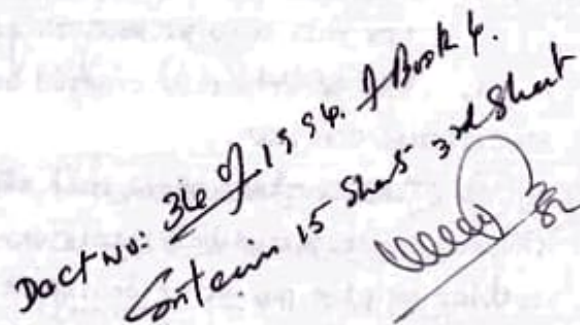 Doct No: 36 of 1994. of Book 4.
Contain 15 Sheets 3rd Sheet